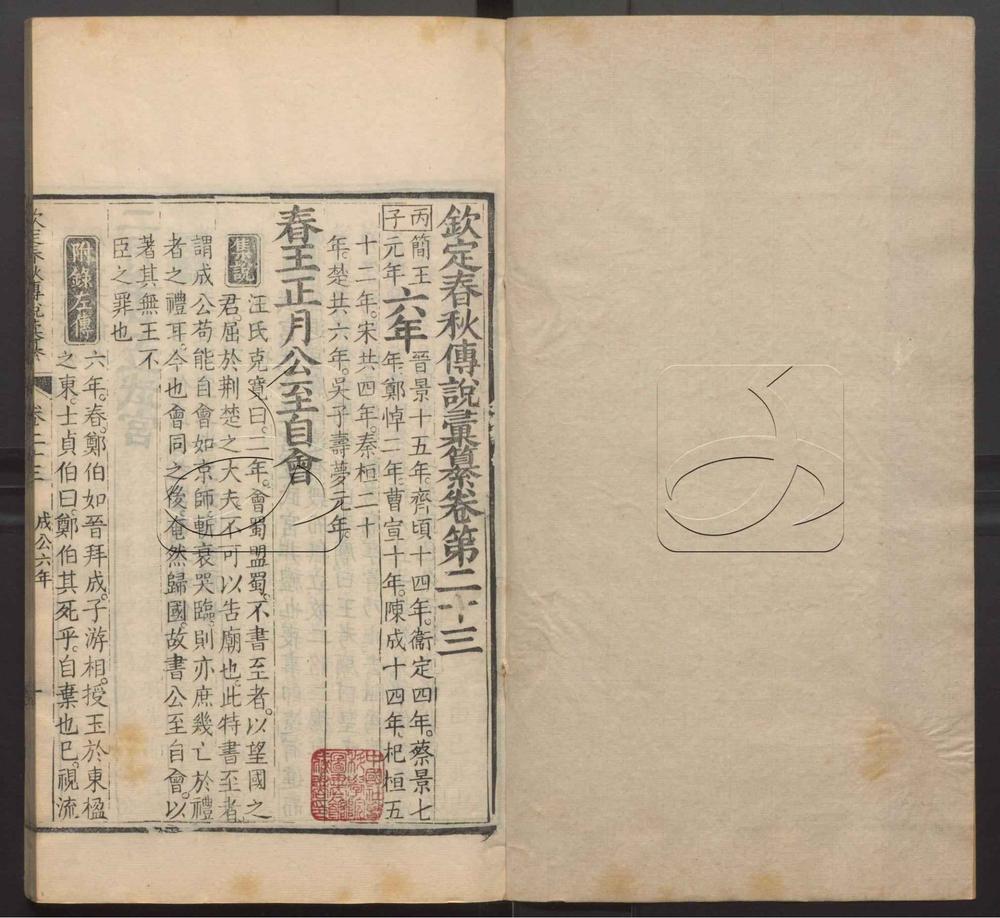 欽定春秋傳說彙纂卷第二十三
丙子
簡王元年
六年
晉景十五年。齊頃十四年。衞定四年。蔡景七
年。鄭悼二年。曹宣十年。陳成十四年。杞桓五
十二年。宋共四年。秦桓二十
年。楚共六年。吳子壽夢元年。
春王正月公至自會
集說
汪氏克寬曰。二年。會蜀盟蜀。不書至者。以望國之
君。屈於荆楚之大夫。不可以告廟也。此特書至者。
謂成公苟能自會如京師。斬衰哭臨。則亦庶幾亡於禮
者之禮耳。今也會同之後。奄然歸國。故書公至自會。以
著其無王不
臣之罪也
附錄左傳
六年。春。鄭伯如晉拜成。子游相。授玉於東楹
之東。士貞伯曰。鄭伯其死乎。自棄也已。視流
卷二十三
成公六年
一